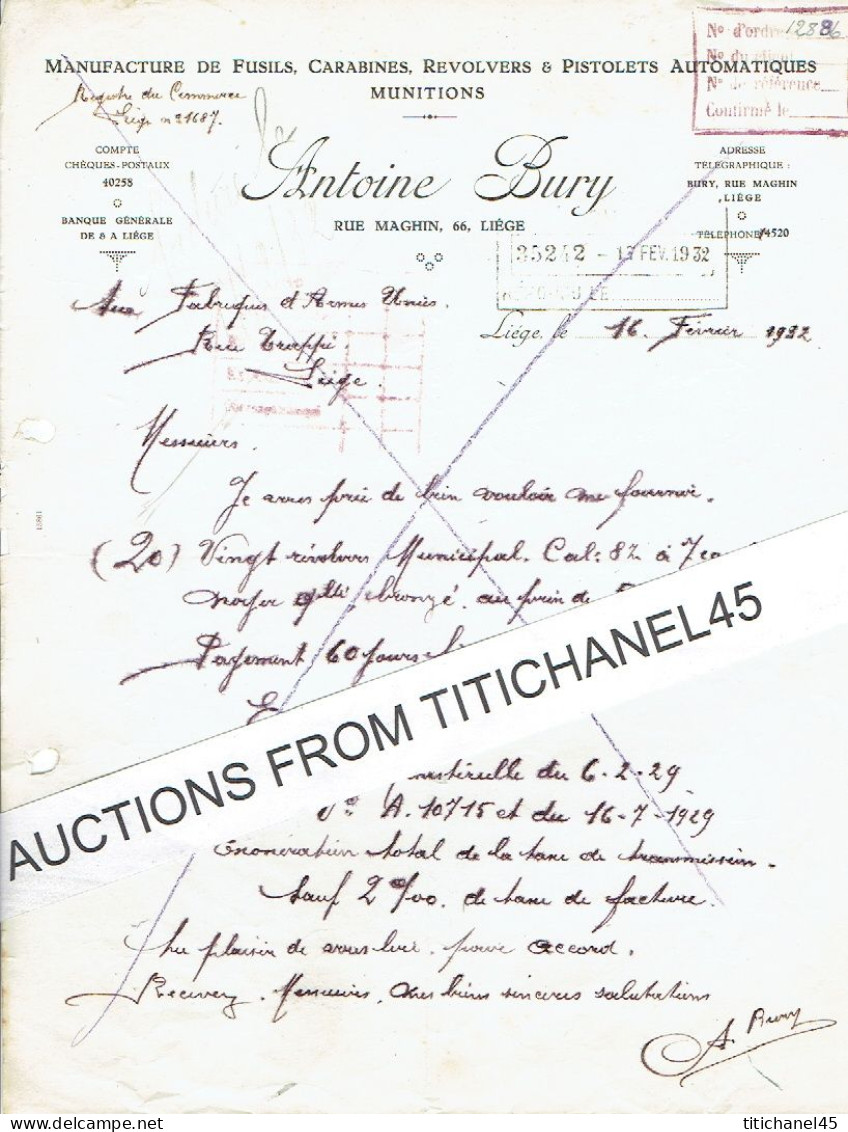 Nº d'ordre 12886
Nº du client
Nº de référence
Confirmé le
MANUFACTURE DE FUSILS, CARABINES, REVOLVERS & PISTOLETS AUTOMATIQUES
MUNITIONS
Registre du Commerce
Liége nº 21687.
COMPTE
CHÈQUES-POSTAUX
40258
BANQUE GÉNÉRALE
DE & A LIÉGE
Antoine Bury
RUE MAGHIN, 66, LIÉGE
ADRESSE
TÉLÉGRAPHIQUE :
BURY, RUE MAGHIN
LIÉGE
TÉLÉPHONE 14520
35242 - 17 FEV. 1932
Aux Fabriques d'Armes Unies.
Rue Trappé
Liége.
Liége, le 16 Février 1932
Messieurs.
Je vous prie de bien vouloir me fournir.
(20) Vingt révolvers Municipal. Cal: 82 à 7 co
noyer qdllé, bronzé. au prix de
Payement 60 jours
nistérielle du 6-2-29
A. 10715 et du 16-7-1929
Exonération total de la taxe de transmission.
Sauf 2 º/oo. de taxe de facture.
Au plaisir de vous lire. pour accord.
Recevez. Messieurs, mes biens sincères salutations
A. Bury
13861
AUCTIONS FROM TITICHANEL45
titichanel45